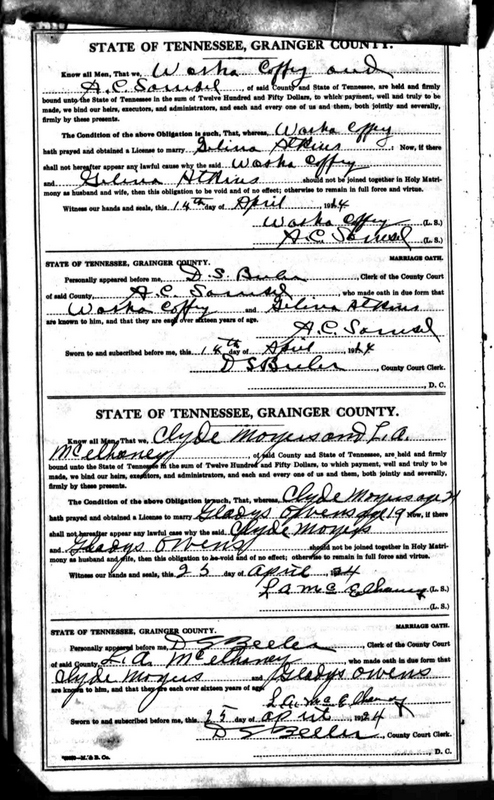 STATE OF TENNESSEE, GRAINGER COUNTY.
Know all Men, That we, Waska Coffey and
A. C. Samsel of said County and State of Tennessee, are held and firmly
bound unto the State of Tennessee in the sum of Twelve Hundred and Fifty Dollars, to which payment, well and truly to be
made, we bind our heirs, executors, and administrators, and each and every one of us and them, both jointly and severally,
firmly by these presents.
The Condition of the above Obligation is Such, That, whereas, Waska Coffey
hath prayed and obtained a License to marry Atkins Now, if there
shall not hereafter appear any lawful cause why the said Waska Coffey
and Atkins should not be joined together in Holy Matri-
mony as husband and wife, then this obligation to be void and of no effect; otherwise to remain in full force and virtue.
Witness our hands and seals, this 14th day of April 1924
Waska Coffey (L. S.)
A. C. Samsel (L. S.)
MARRIAGE OATH.
STATE OF TENNESSEE, GRAINGER COUNTY.
Personally appeared before me, D. S. Beeler Clerk of the County Court
of said County A. C. Samsel who made oath in due form that
Waska Coffey and Atkins
are known to him, and that they are each over sixteen years of age.
A. C. Samsel
Sworn to and subscribed before me, this 14th day of April 1924
D S Beeler, County Court Clerk.
, D. C.
STATE OF TENNESSEE, GRAINGER COUNTY.
Know all Men, That we, Clyde Moyers and L. A.
McElhaney of said County and State of Tennessee, are held and firmly
bound unto the State of Tennessee in the sum of Twelve Hundred and Fifty Dollars, to which payment, well and truly to be
made, we bind our heirs, executors, and administrators, and each and every one of us and them, both jointly and severally,
firmly by these presents.
The Condition of the above Obligation is such, That, whereas, Clyde Moyers age 21
hath prayed and obtained a License to marry Gladys Owens age 19 Now, if there
shall not hereafter appear any lawful case why the said Clyde Moyers
and Gladys Owens should not be joined together in Holy Matri-
mony as husband and wife, then this obligation to be void and of no effect; otherwise to remain in full force and virtue.
Witness our hands and seals, this 25 day of April 24
L A McElhaney (L. S.)
(L. S.)
MARRIAGE OATH.
STATE OF TENNESSEE, GRAINGER COUNTY.
Personally appeared before me, D S Beeler Clerk of the County Court
of said County L. A. McElhaney who made oath in due form that
Clyde Moyers and Gladys Owens
are known to him, and that they are each over sixteen years of age.
L. A. McElhaney
Sworn to and subscribed before me, this 25 day of April 1924
D S Beeler, County Court Clerk.
, D. C.